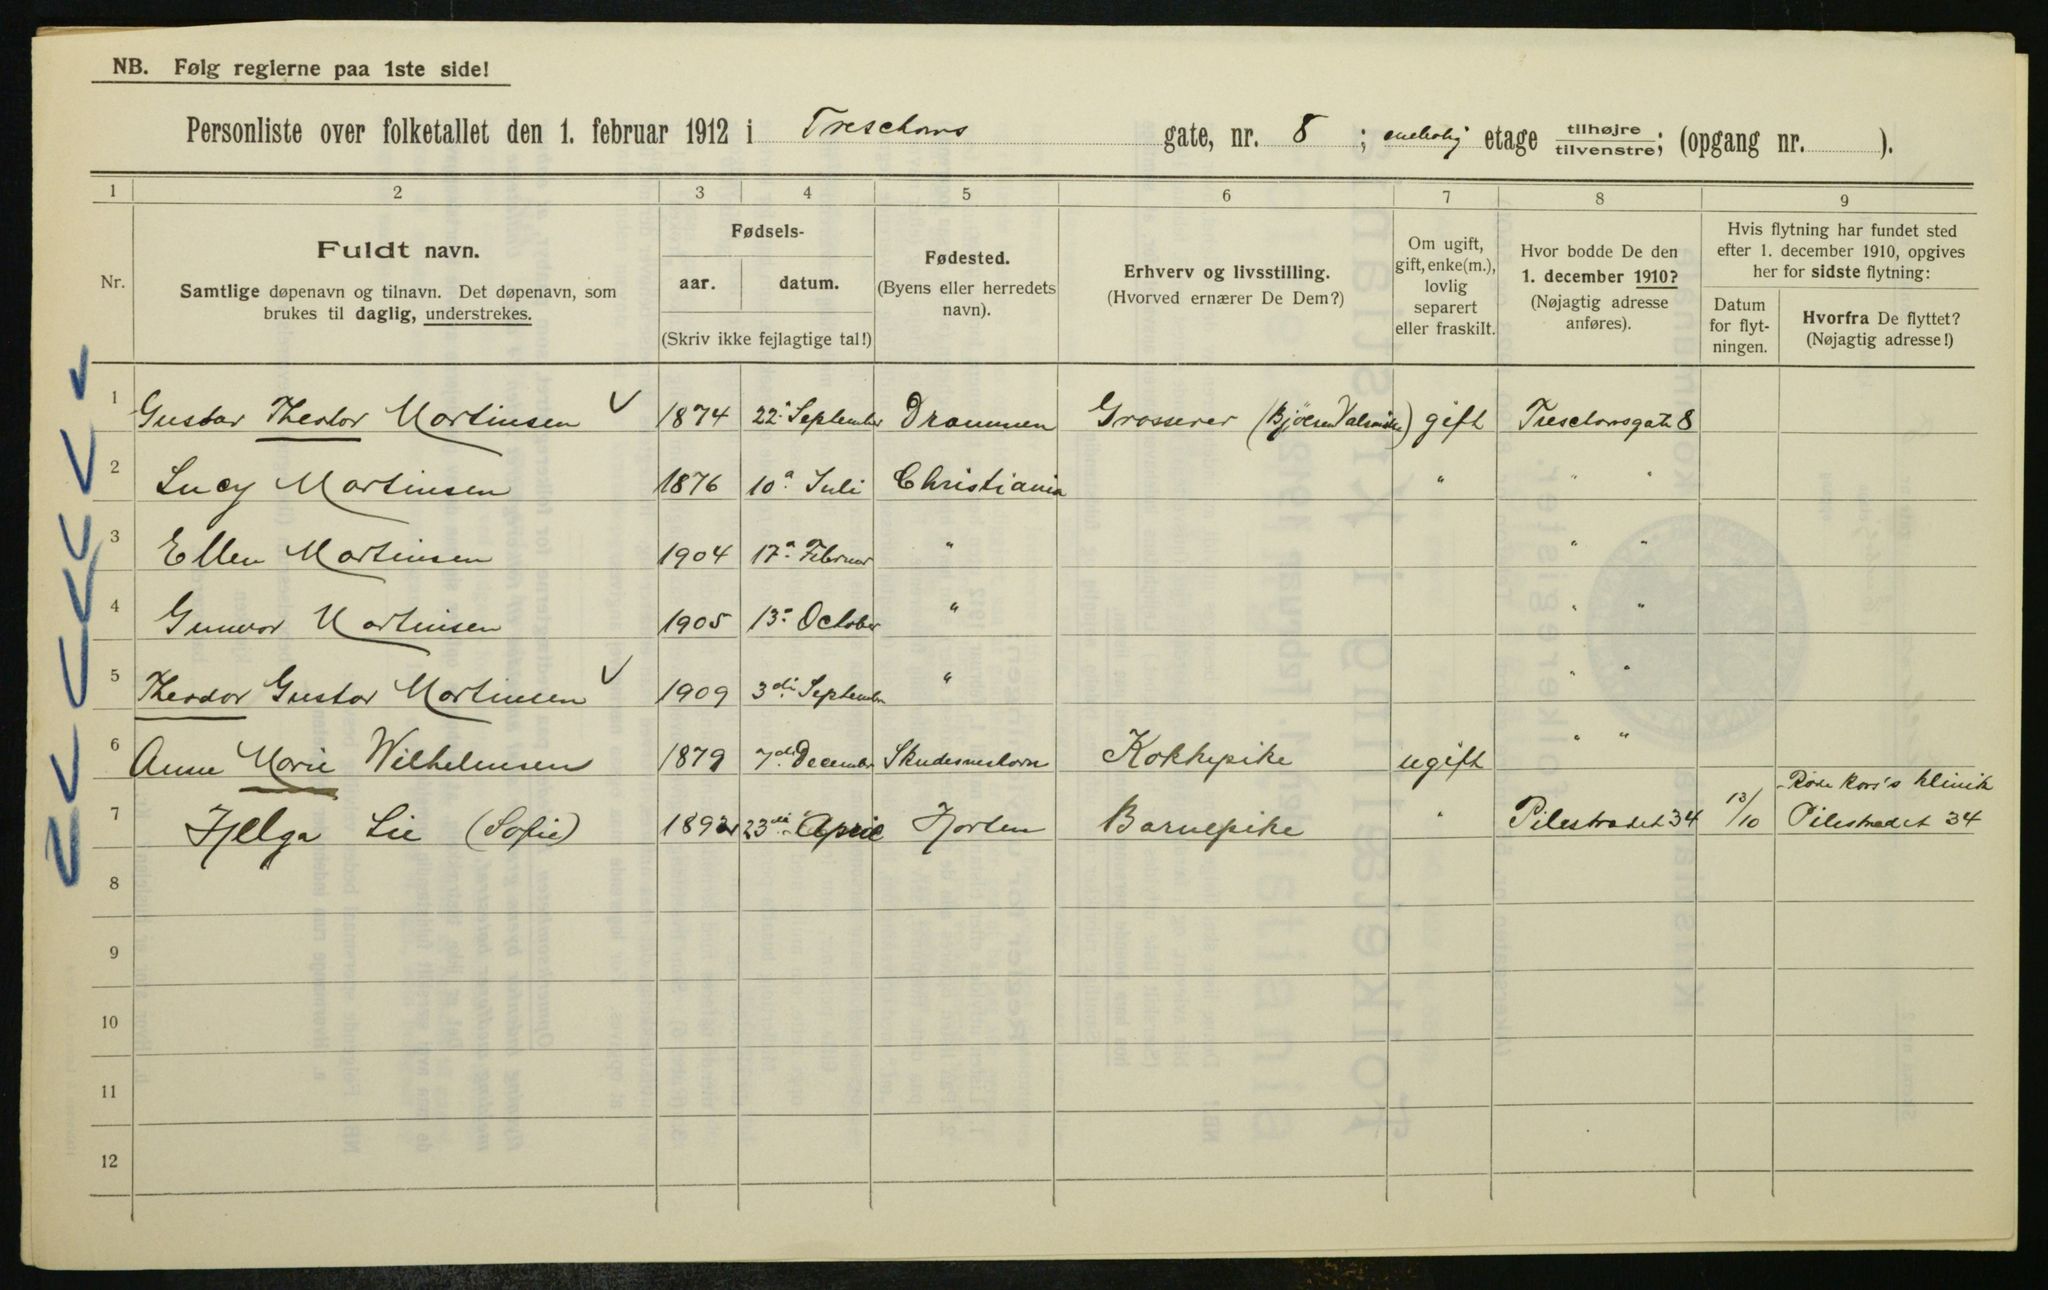 NB. Følg reglerne paa 1ste side!
Personliste over folketallet den 1. februar 1912 i Treschows gate, nr. 8 ; enebolig etage tilhøjre/tilvenstre; (opgang nr. ).
1 2 3 4 5 6 7 8 9
Nr.
Fuldt navn.
Samtlige døpenavn og tilnavn. Det døpenavn, som
brukes til daglig, understrekes.
Fødsels-
aar. datum.
(Skriv ikke fejlagtige tal!)
Fødested.
(Byens eller herredets
navn).
Erhverv og livsstilling.
(Hvorved ernærer De Dem?)
Om ugift,
gift, enke(m.),
lovlig
separert
eller fraskilt.
Hvor bodde De den
1. december 1910?
(Nøjagtig adresse
anføres).
Hvis flytning har fundet sted
efter 1. december 1910, opgives
her for sidste flytning:
Datum
for flyt-
ningen.
Hvorfra De flyttet?
(Nøjagtig adresse!)
1 Gustav Theodor Martinsen 1874 22. September Drammen Grosserer (Bjølsen Valsmølle) gift Treschowsgate 8
2 Lucy Martinsen 1876 10. Juli Christiania " " "
3 Ellen Martinsen 1904 17. Februar " " "
4 Gunvor Martinsen 1905 13. October " " "
5 Theodor Gustav Martinsen 1909 3di September " " "
6 Anne Marie Wilhelmsen 1879 7di December Skudesneshavn Kokkepike ugift " "
Røde Kors's klinik
7 Hjelga Lie (Sofie) 23di April Horten Barnepike " Pilestrædet 34 13/10 Pilestrædet 34
8
9
10
11
12